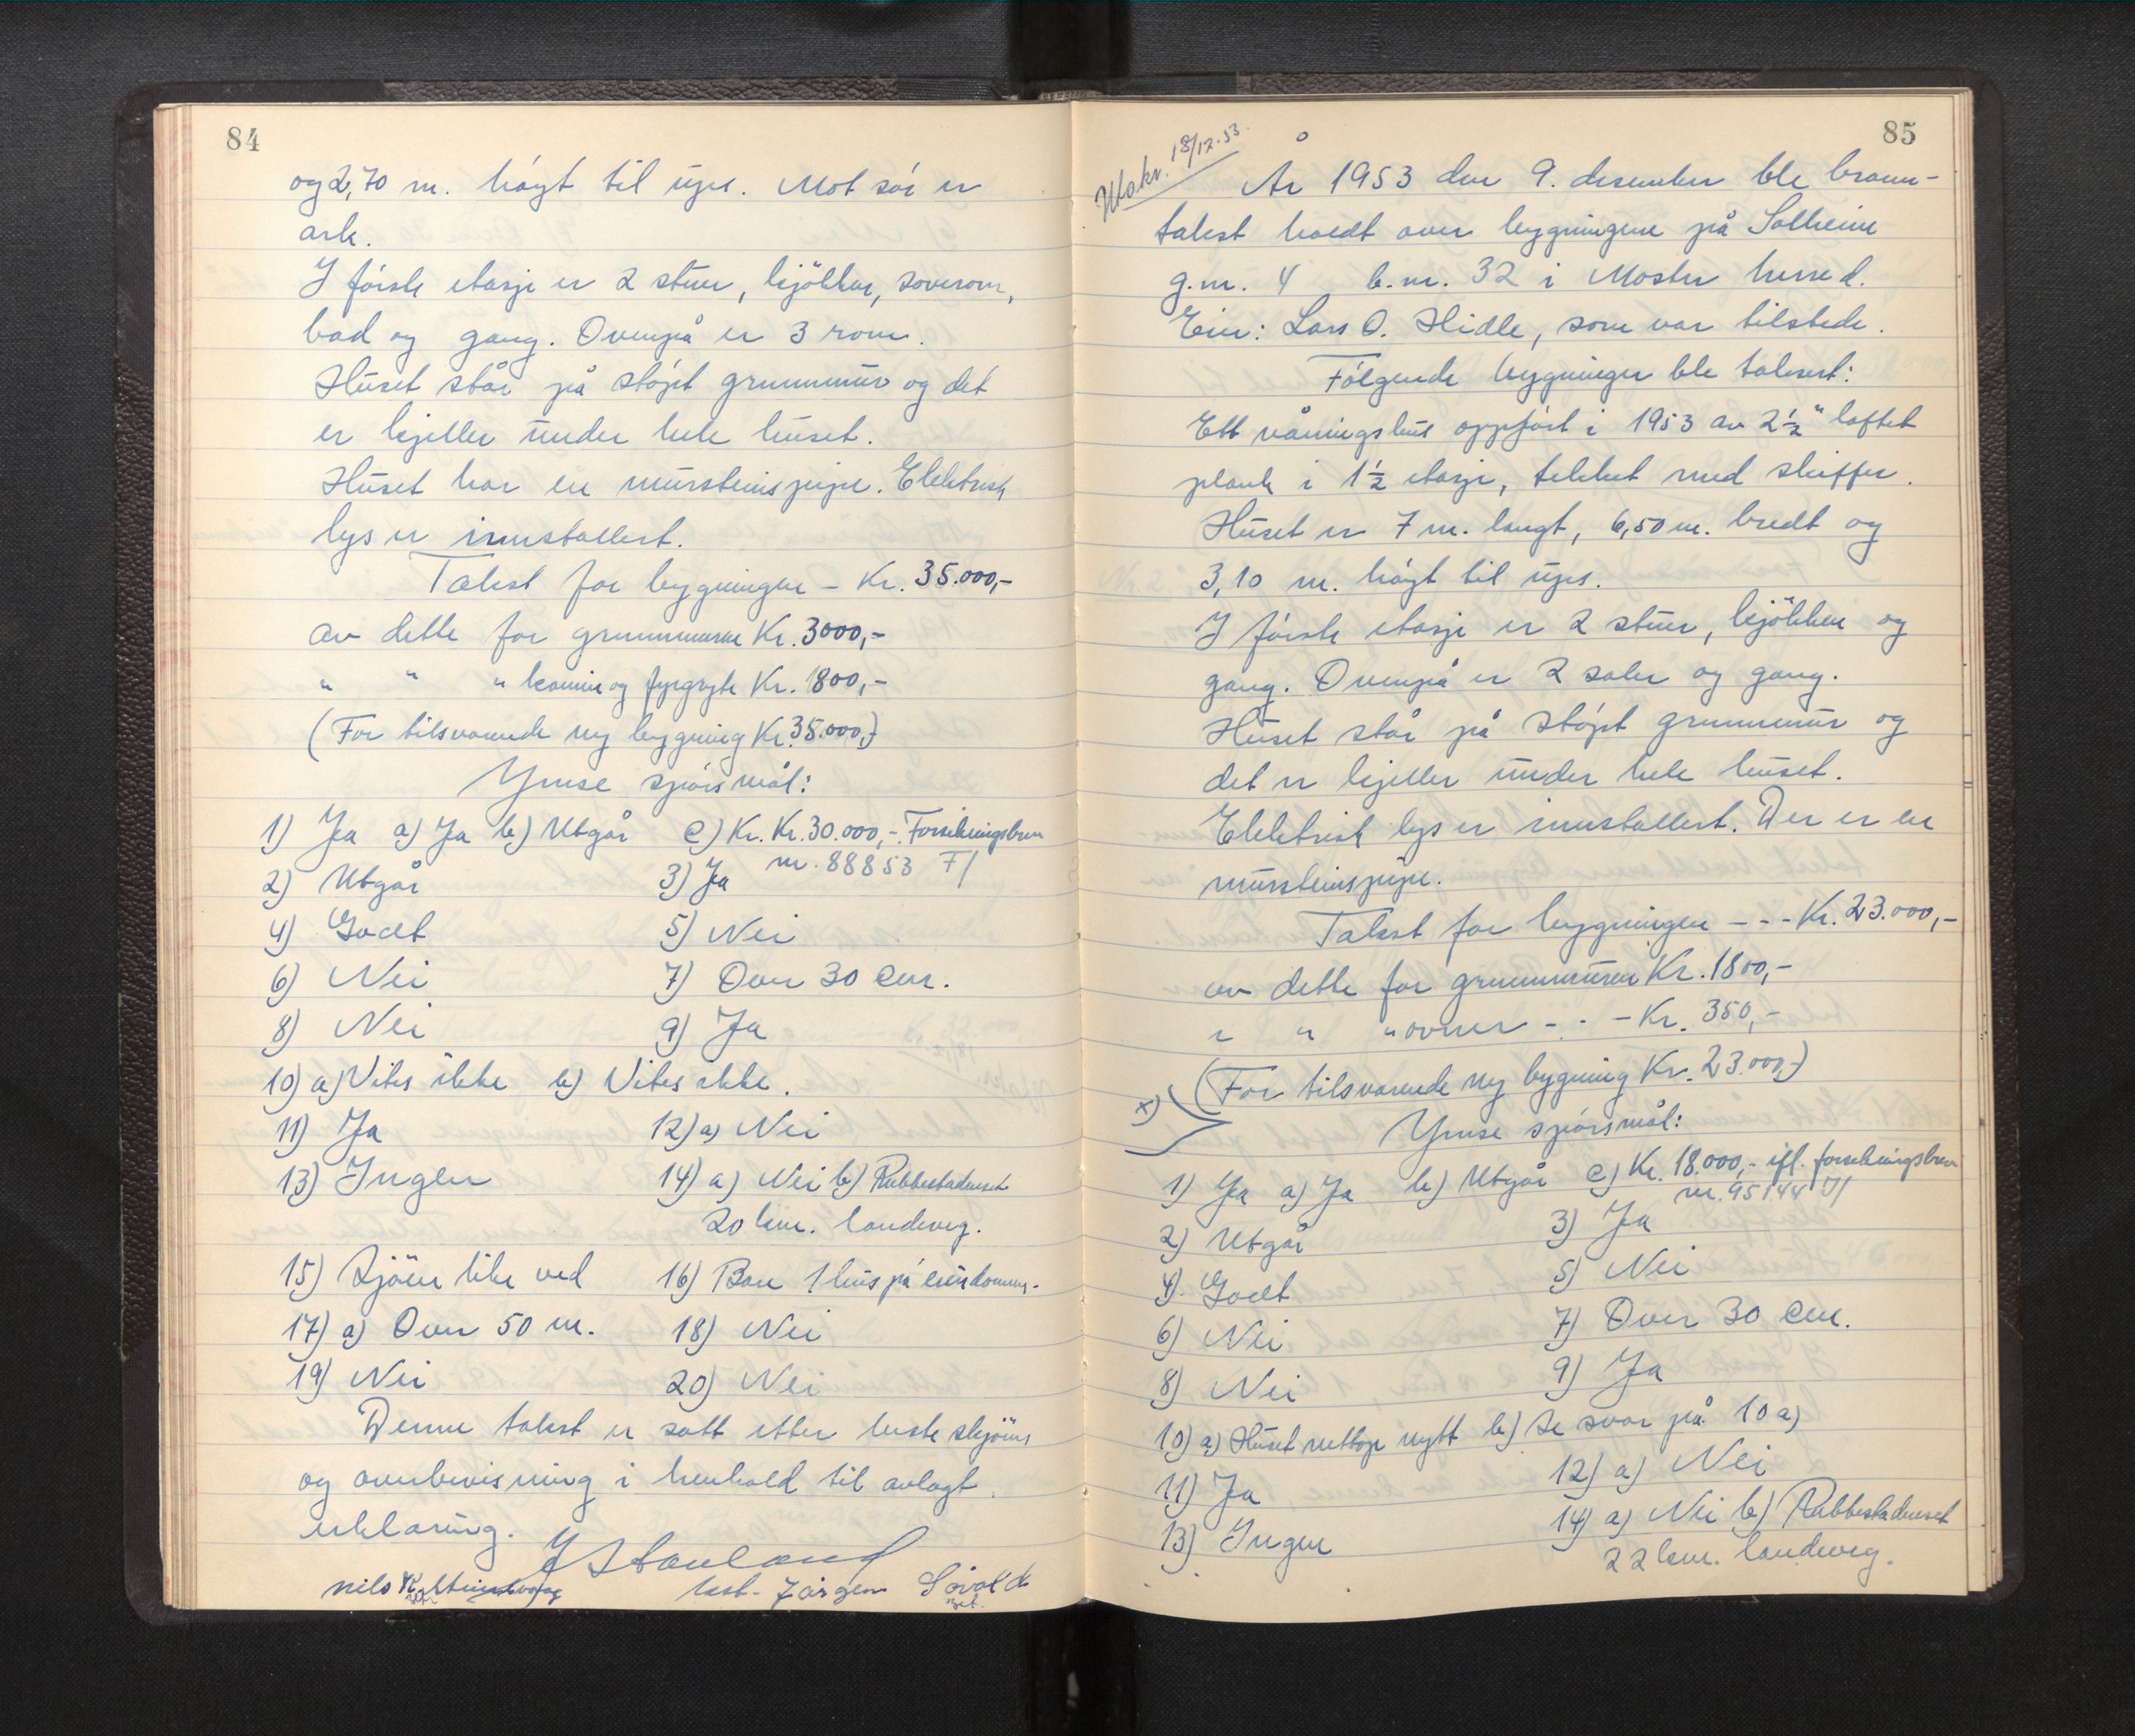 84
og 2,70 m. høgt til ups. Mot sør er
ark.
I første etasje er 2 stuer, kjøkken, soverom,
bad og gang. Ovenpå er 3 rom.
Huset står på støpt grunnmur og det
er kjeller under hele huset.
Huset har en mursteinspipe. Elektrisk
lys er innstallert.
Takst for bygningen - Kr. 35.000,-
av dette for grunnmuren Kr. 3000,-
" " " kamin og fyrgryte Kr. 1800,-
(For tilsvarende ny bygning Kr. 35.000,-)
Ymse spørsmål:
1) Ja a) Ja b) Utgår c) Kr. Kr. 30.000,-. Forsikringsbrev
nr. 88853 F/
2) Utgår 3) Ja
4) Godt 5) Nei
6) Nei 7) Over 30 cm.
8) Nei 9) Ja
10) a) Vites ikke b) Vites ikke.
11) Ja 12) a) Nei
13) Ingen 14) a) Nei b) Rubbestadneset
20 km. landeveg.
15) Sjøen like ved 16) Bare 1 hus på eiendommen.
17) a) Over 50 m. 18) Nei
19) Nei 20) Nei
Denne takst er satt etter beste skjønn
og overbevisning i henhold til avlagt
erklæring.
Nils Jørgen Søvold
85
Utskr. 18/12.53.
År 1953 den 9. desember ble brann-
takst holdt over bygningene på Solheim
g.nr. 4 b.nr. 32 i Moster herred.
Eier: Lars O. Hidle, som var tilstede.
Følgende bygninger ble taksert:
Ett våningshus oppført i 1953 av 2½" loftet
plank i 1½ etasje, tekket med skiffer.
Huset er 7 m. langt, 6,50 m. bredt og
3,10 m. høgt til ups.
I første etasje er 2 stuer, kjøkken og
gang. Ovenpå er 2 saler og gang.
Huset står på støpt grunnmur og
det er kjeller under hele huset.
Elektrisk lys er innstallert. Der er en
mursteinspipe.
Takst for bygningen --- Kr. 23.000,-
av dette for grunnmuren Kr. 1800,-
" " " ovner - - - Kr. 350,-
(For tilsvarende ny bygning Kr. 23.000,-)
x) Ymse spørsmål:
1) Ja a) Ja b) Utgår c) Kr. 18.000,- ifl. forsikringsbrev
nr. 95144 J/
2) Utgår 3) Ja
4) Godt 5) Nei
6) Nei 7) Over 30 cm.
8) Nei 9) Ja
10) a) Huset nettop nytt b) Se svar på 10 a)
11) Ja 12) a) Nei
13) Ingen 14) a) Nei b) Rubbestadneset
22 km. landeveg.